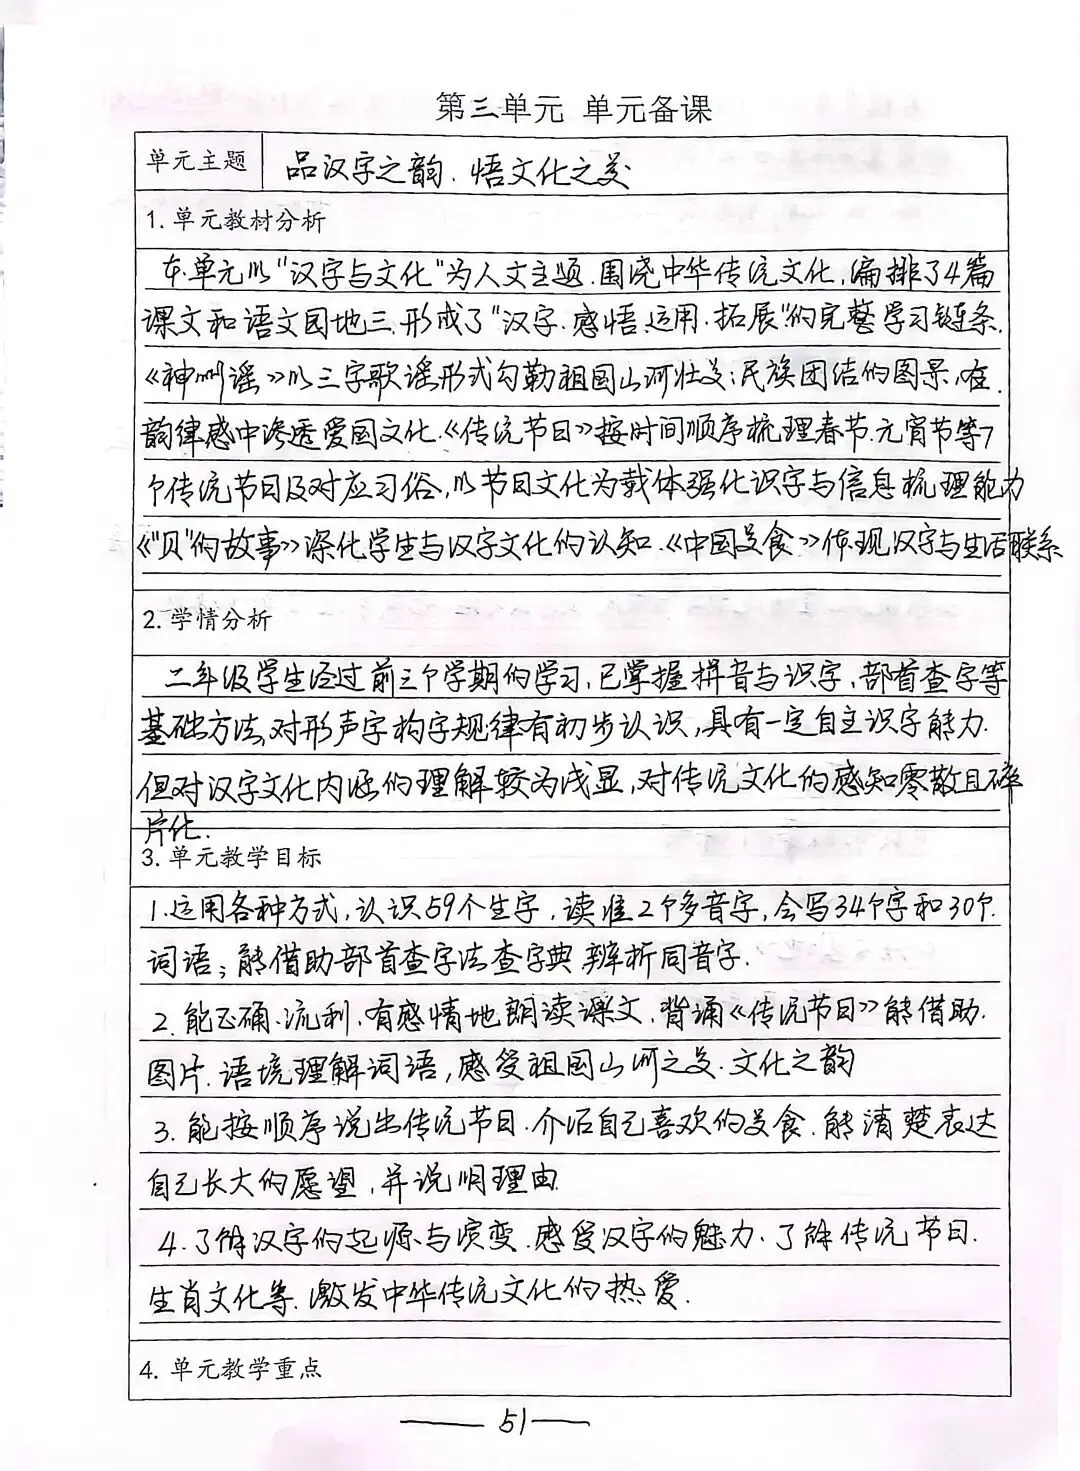 第三单元 单元备课
单元主题 品汉字之韵.悟文化之美
1. 单元教材分析
本单元以“汉字与文化”为人文主题.围绕中华传统文化,编排了4篇
课文和语文园地三.形成了“汉字.感悟.运用.拓展”的完整学习链条.
《神州谣》以三字歌谣形式勾勒祖国山河壮美;民族团结的图景.在
韵律感中渗透爱国文化.《传统节日》按时间顺序梳理春节.元宵节等7
个传统节日及对应习俗,以节日文化为载体强化识字与信息梳理能力
《“贝”的故事》深化学生与汉字文化的认知.《中国美食》体现汉字与生活联系
2. 学情分析
二年级学生经过前三个学期的学习,已掌握拼音与识字,部首查字等
基础方法,对形声字构字规律有初步认识,具有一定自主识字能力.
但对汉字文化内涵的理解较为浅显,对传统文化的感知零散且碎
片化.
3. 单元教学目标
1.运用各种方式,认识59个生字,读准2个多音字,会写34个字和30个.
词语;能借助部首查字法查字典 辨析同音字.
2.能正确.流利.有感情地朗读课文.背诵《传统节日》能借助.
图片.语境理解词语,感受祖国山河之美.文化之韵
3.能按顺序说出传统节日.介绍自己喜欢的美食.能清楚表达
自己长大的愿望,并说明理由.
4.了解汉字的起源与演变.感受汉字的魅力.了解传统节日.
生肖文化等.激发中华传统文化的热爱.
4. 单元教学重点
51